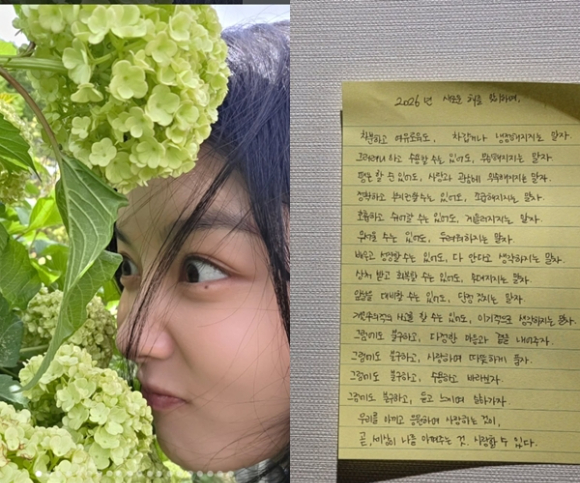 2026년 새로운 해를 맞이하며,
차분하고 여유로워도, 차갑거나 냉정해지지는 말자.
하고 수용할 수는 있어도, 무뎌지지는 말자.
말자.
정확하고 부지런할 수는 있어도, 조급해지지는 말자.
호흡하고 쉬어갈 수는 있어도, 게을러지지는 말자.
수는 있어도, 두려워하지는 말자.
배우고 성장할 수는 있어도, 다 안다고 생각하지는 말자.
상처 받고 회복할 수는 있어도, 무뎌지지는 말자.
대비할 수는 있어도, 단정 짓지는 말자.
할 수는 있어도, 이기적으로 생각하지는 말자.
그럼에도 불구하고, 다정한 마음과 곁을 내어주자.
그럼에도 불구하고, 사랑하며 따뜻하게 품자.
그럼에도 불구하고, 수용하고 바라보자.
그럼에도 불구하고, 듣고 느끼며 말하가자
우리를 아끼고 응원하며 사랑하는 것이,
곧, 세상이 나를 아껴주는 것. 사랑할 수 있다.